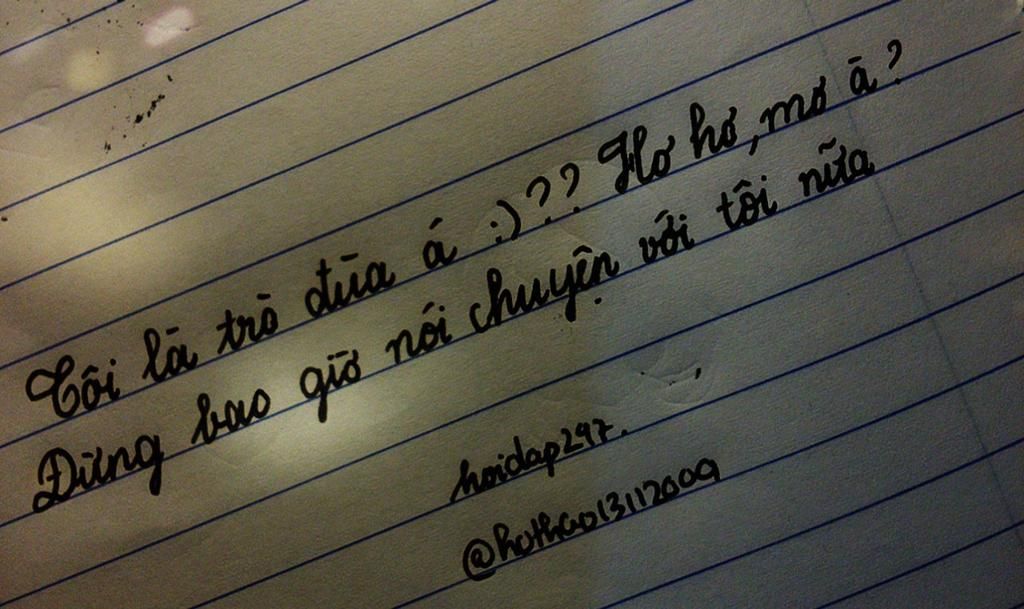 Tôi là trò đùa á :)?? Hơ hơ, mơ à?
Đừng bao giờ nói chuyện với tôi nữa
hoidap247.
@hothao13112009